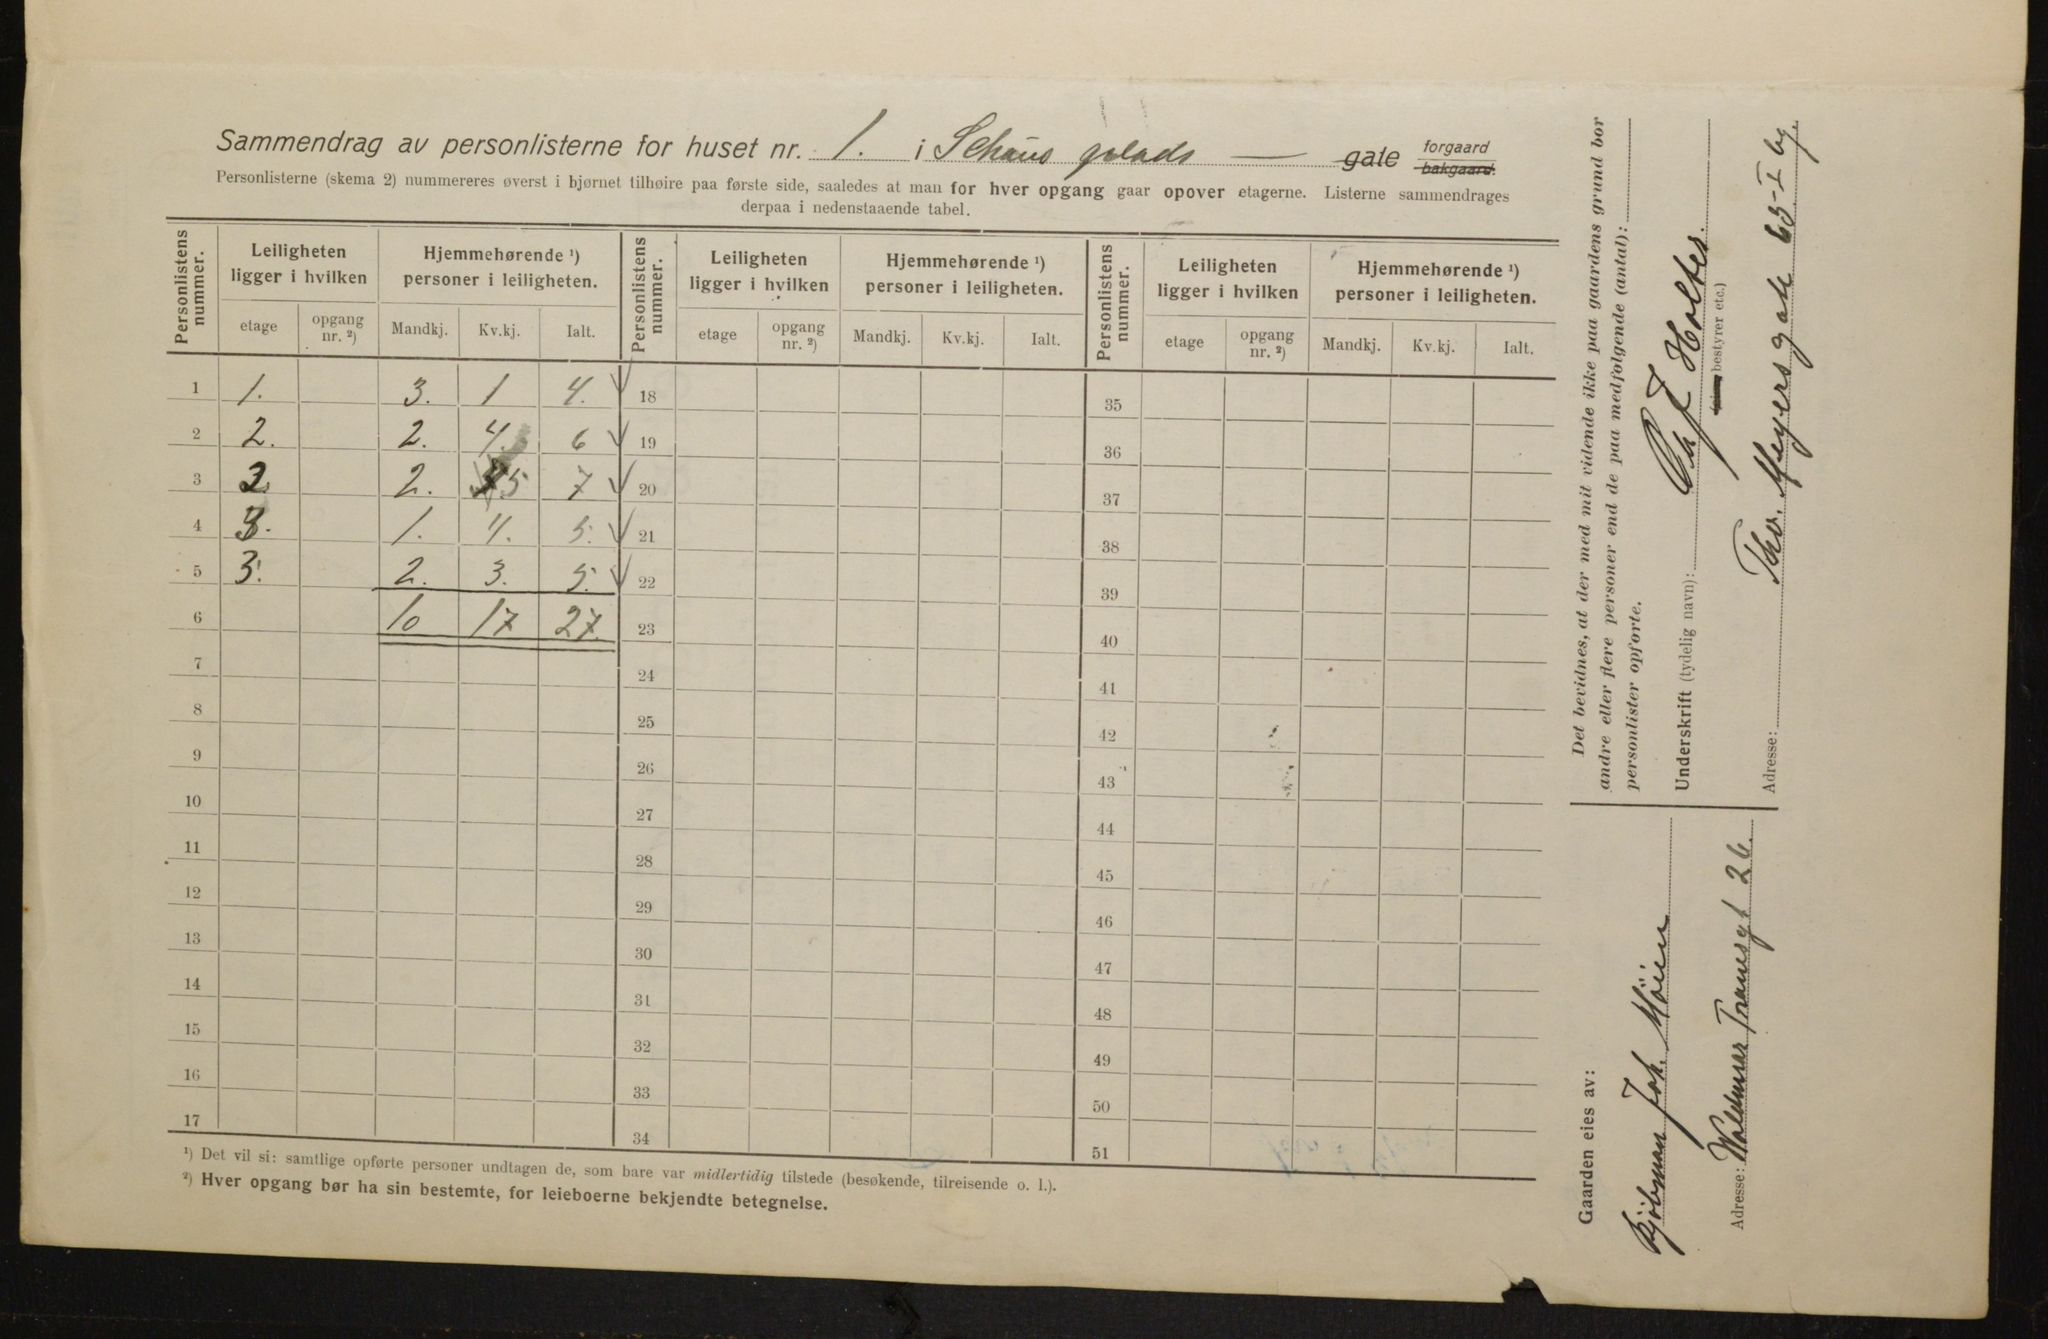 Sammendrag av personlisterne for huset nr. 1. i Schous plads — gate forgaard bakgaard.
Personlisterne (skema 2) nummereres øverst i hjørnet tilhøire paa første side, saaledes at man for hver opgang gaar opover etagerne. Listerne sammendrages
derpaa i nedenstaaende tabel.
Personlistens nummer. Leiligheten ligger i hvilken Hjemmehørende ¹) personer i leiligheten. Personlistens nummer. Leiligheten ligger i hvilken Hjemmehørende ¹) personer i leiligheten. Personlistens nummer. Leiligheten ligger i hvilken Hjemmehørende ¹) personer i leiligheten.
etage opgang nr. ²) Mandkj. Kv.kj. Ialt. etage opgang nr. ²) Mandkj. Kv.kj. Ialt. etage opgang nr. ²) Mandkj. Kv.kj. Ialt.
1 1. 3. 1 4. 18 35
2 2. 2. 4. 6 19 36
3 2 2. 5 7 20 37
4 3. 1. 4. 5. 21 38
5 3. 2. 3. 5. 22 39
6 10 17 27. 23 40
7 24 41
8 25 42
9 26 43
10 27 44
11 28 45
12 29 46
13 30 47
14 31 48
15 32 49
16 33 50
17 34 51
¹) Det vil si: samtlige opførte personer undtagen de, som bare var midlertidig tilstede (besøkende, tilreisende o. l.).
²) Hver opgang bør ha sin bestemte, for leieboerne bekjendte betegnelse.
Det bevidnes, at der med mit vidende ikke paa gaardens grund bor
andre eller flere personer end de paa medfølgende (antal):
personlister opførte.
Underskrift (tydelig navn): Chr. J. Holter.
bestyrer etc.)
Adresse: Thv. Meyersgate 63-I by.
Gaarden eies av:
Kjöbman Joh. Möien
Adresse: Waldemar Tranesgt 26.